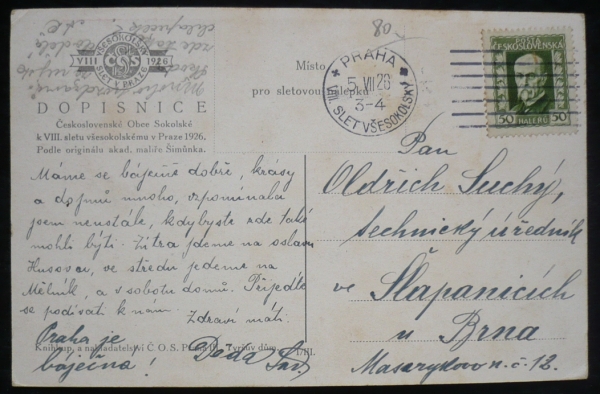 VŠESOKOLSKÝ
VIII 1926
ČOS
SLET V PRAZE
DOPISNICE
Československé Obce Sokolské
k VIII. sletu všesokolskému v Praze 1926.
Podle originálu akad. malíře Šimůnka.
Místo
pro sletovou nálepku
80
PRAHA
5 VII 26
3-4
VIII. SLET VŠESOKOLSKÝ
POSTA
ČESKOSLOVENSKÁ
50 HALÉŘŮ 50
Máme se báječně dobře, krásy
a dojmů mnoho, vzpomínala
jsem neustále, kdybyste zde také
mohli býti. Zítra jdeme na oslavu
Husovu, ve středu jedeme na
Mělník, a v sobotu domů. Přijeďte
se podívati k nám.
Zdraví máti.
Praha je
báječná!
Pan
Oldřich Suchý,
technický úředník
ve Šlapanicích
u Brna
Masarykova n. č. 12.
Knihkup. a nakladatelství Č O S. Praha III. Tyršův dům.
I/III.